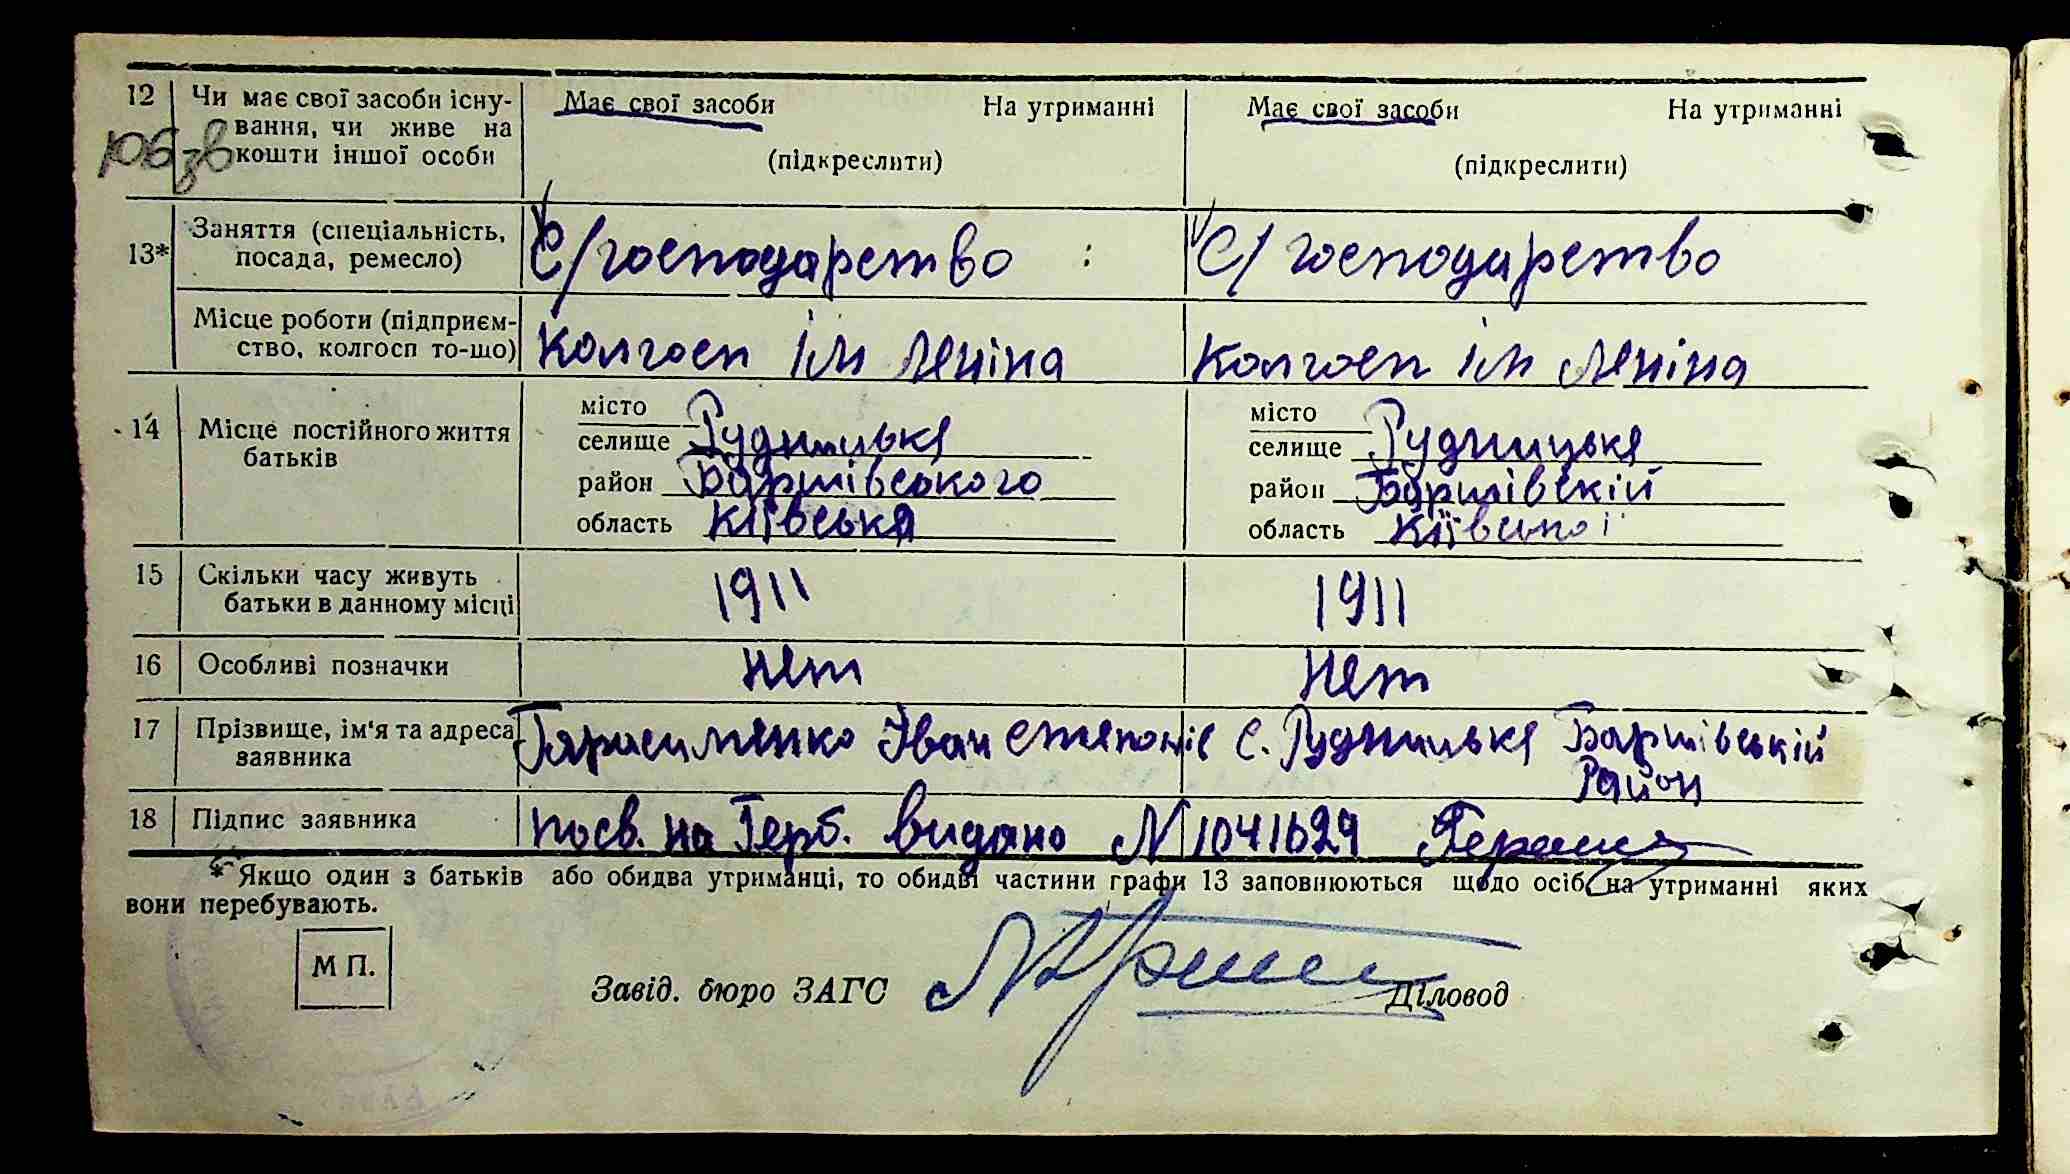 12 Чи має свої засоби існу- Має свої засоби На утриманні Має свої засоби На утриманні
вання, чи живе на
кошти іншої особи (підкреслити) (підкреслити)
Заняття (спеціальність, С/господарство С/господарство
13* посада, ремесло)
Місце роботи (підприєм- Колгосп ім Леніна Колгосп ім Леніна
ство, колгосп то-що)
місто місто
14 Місце постійного життя селище Рудницьке селище Рудницьке
батьків район Баришівського район Баришівскій
область Київська область Київської
15 Скільки часу живуть 1911 1911
батьки в данному місці
16 Особливі позначки Нет Нет
17 Прізвище, ім'я та адреса Іван с. Рудницьке Баришівській
заявника Район
18 Підпис заявника посв. на Герб. видано N 1041629
* Якщо один з батьків або обидва утриманці, то обидві частини графи 13 заповнюються щодо осіб, на утриманні яких
вони перебувають.
М П.
Завід. бюро ЗАГС Діловод